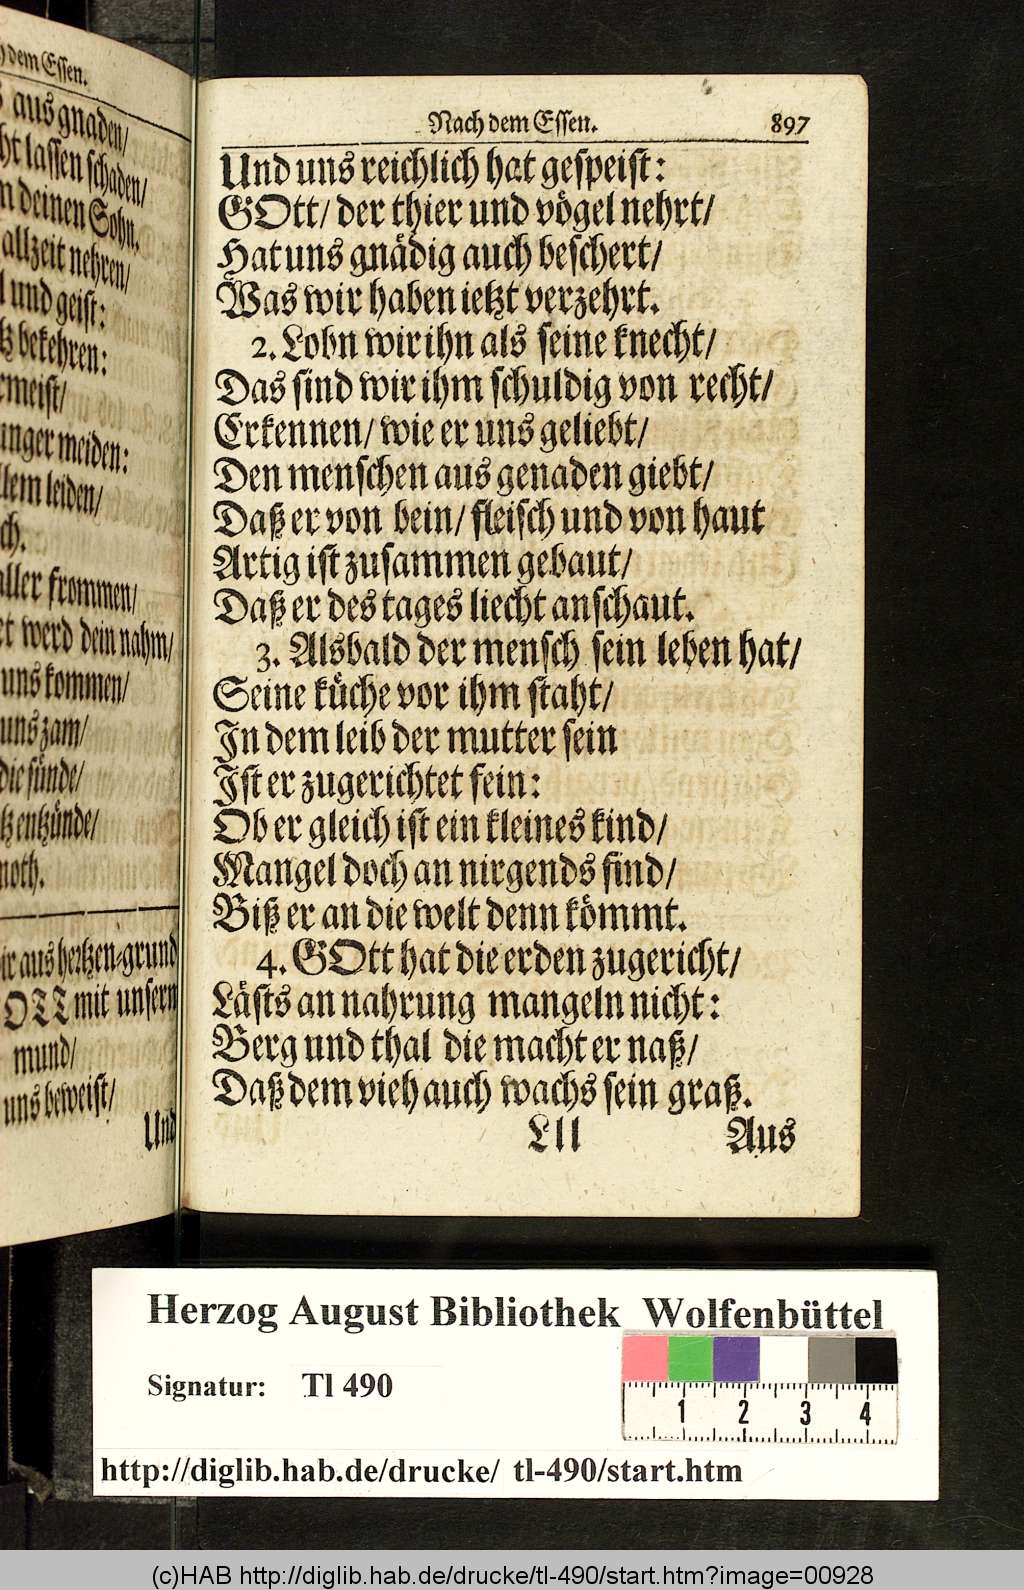 dem Essen.
aus gnaden/
lassen schaden/
deinen Sohn.
allzeit nehren/
und geist:
bekehren:
meiden:
leiden/
aller frommen/
werd dein nahm/
uns kommen/
uns zam/
die sünde/
entzünde/
noth.
aus hertzen-grund
mit unsern
mund/
uns beweist/
Und
Nach dem Essen. 897
Und uns reichlich hat gespeist:
GOtt/ der thier und vögel nehrt/
Hat uns gnädig auch beschert/
Was wir haben ietzt verzehrt.
2. Lobn wir ihn als seine knecht/
Das sind wir ihm schuldig von recht/
Erkennen/ wie er uns geliebt/
Den menschen aus genaden giebt/
Daß er von bein/ fleisch und von haut
Artig ist zusammen gebaut/
Daß er des tages liecht anschaut.
3. Alsbald der mensch sein leben hat/
Seine küche vor ihm staht/
In dem leib der mutter sein
Ist er zugerichtet fein:
Ob er gleich ist ein kleines kind/
Mangel doch an nirgends find/
Biß er an die welt denn kömmt.
4. GOtt hat die erden zugericht/
Lästs an nahrung mangeln nicht:
Berg und thal die macht er naß/
Daß dem vieh auch wachs sein graß.
Lll Aus
Herzog August Bibliothek Wolfenbüttel
Signatur: Tl 490
1 2 3 4
http://diglib.hab.de/drucke/ tl-490/start.htm
(c)HAB http://diglib.hab.de/drucke/tl-490/start.htm?image=00928